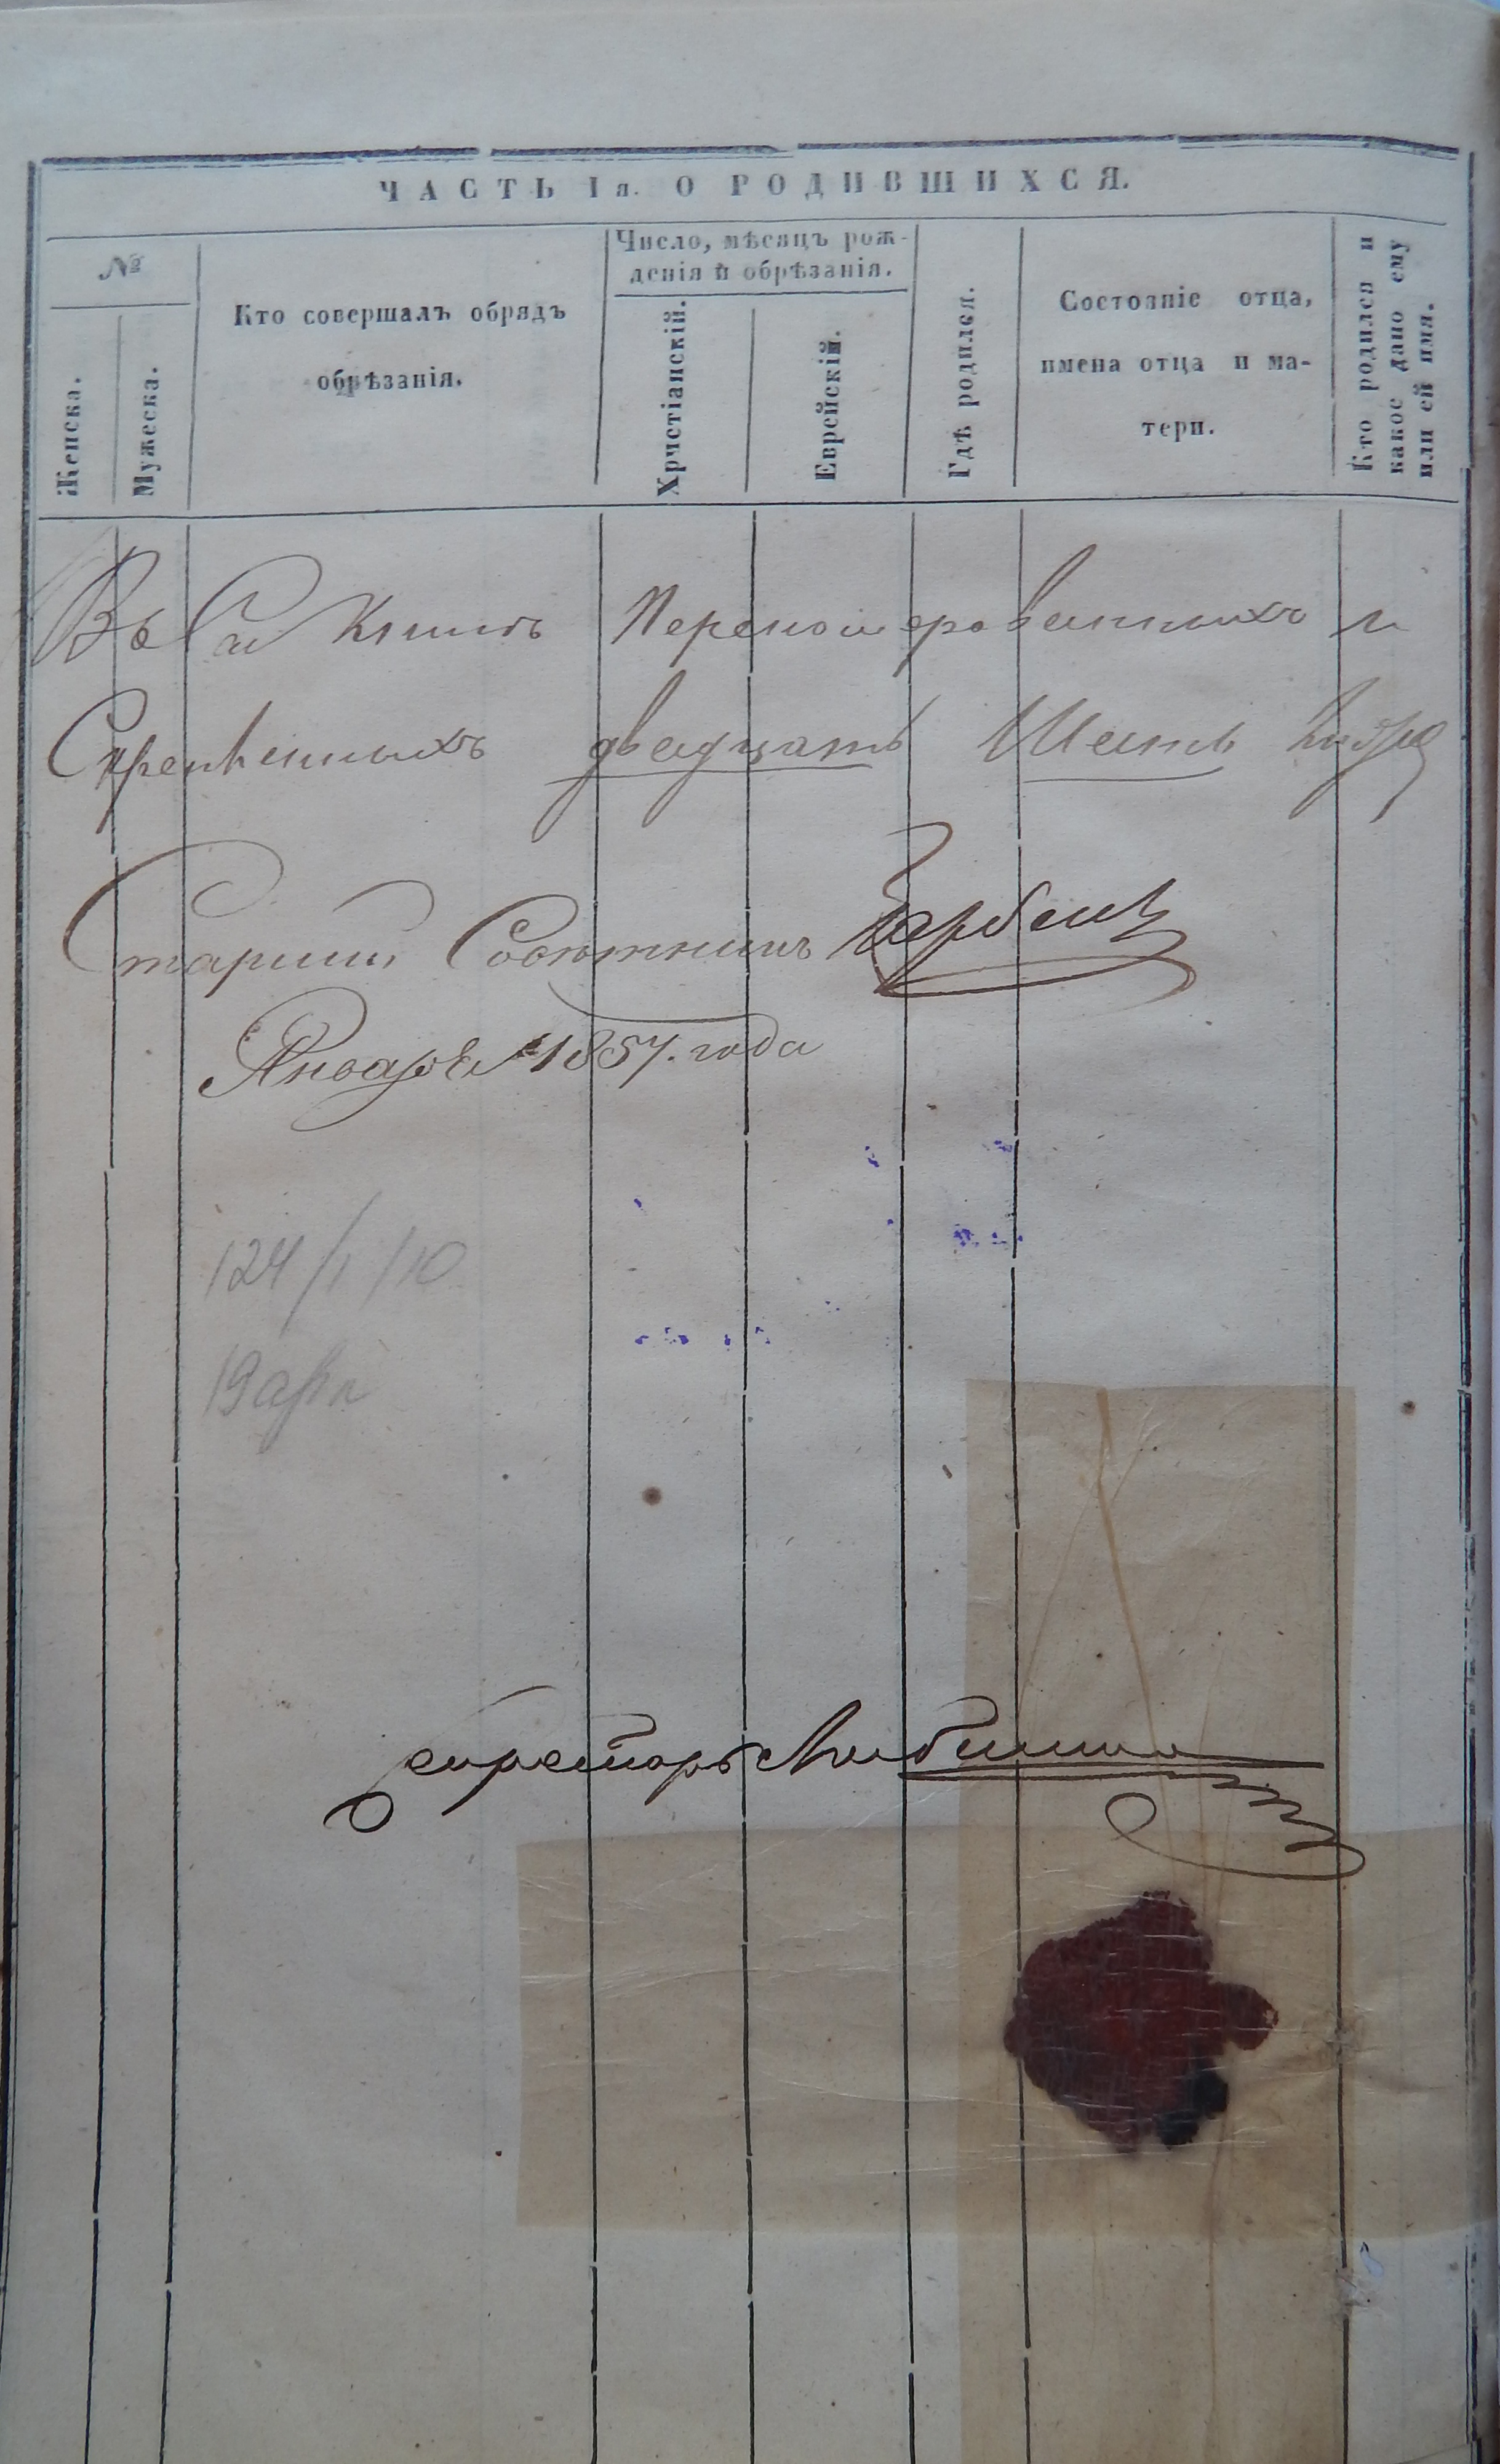 ЧАСТЬ Iя. О РОДИВШИХСЯ.
№
Женска.
Мужеска.
Кто совершалъ обрядъ
обрѣзанія.
Число, мѣсяцъ рож-
денія и обрѣзанія.
Христіанскій.
Еврейскій.
Гдѣ родился.
Состояніе отца,
имена отца и ма-
тери.
Кто родился и
какое дано ему
или ей имя.
Въ сей книгѣ перенумерованныхъ и
Скрепленныхъ двадцать шесть
Старшій Совѣтникъ
Января 1857. года
124/1/10
19
Секретарь